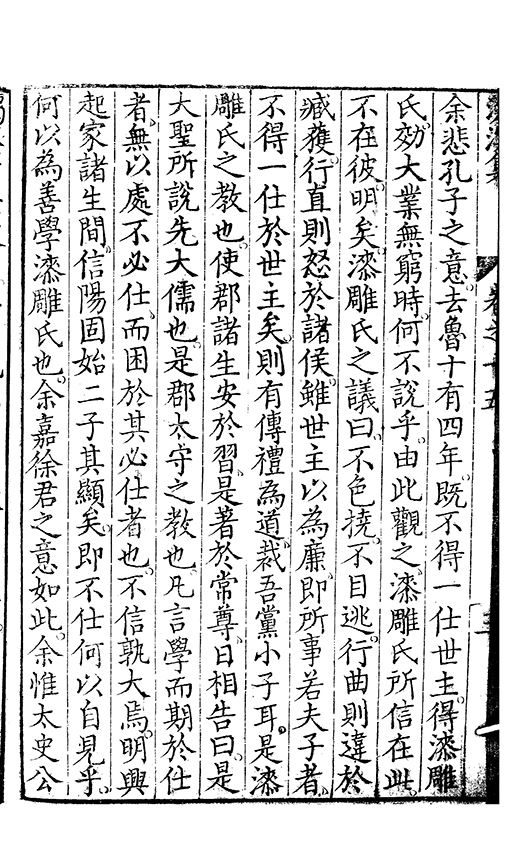 余悲孔子之意去魯十有四年既不得一仕世主得漆雕
氏効大業無窮時何不說乎由此觀之漆雕氏所信在此
不在彼明矣漆雕氏之議曰不色撓不目逃行曲則違於
臧獲行直則怒於諸侯雖世主以為廉即所事若夫子者
不得一仕於世主矣則有傳禮為道裁吾黨小子耳是漆
雕氏之教也使郡諸生安於習是著於常尊日相告曰是
大聖所說先大儒也是郡太守之教也凡言學而期於仕
者無以處不必仕而困於其必仕者也不信孰大焉明興
起家諸生間信陽固始二子其顯矣即不仕何以自見乎
何以為善學漆雕氏也余嘉徐君之意如此余惟太史公